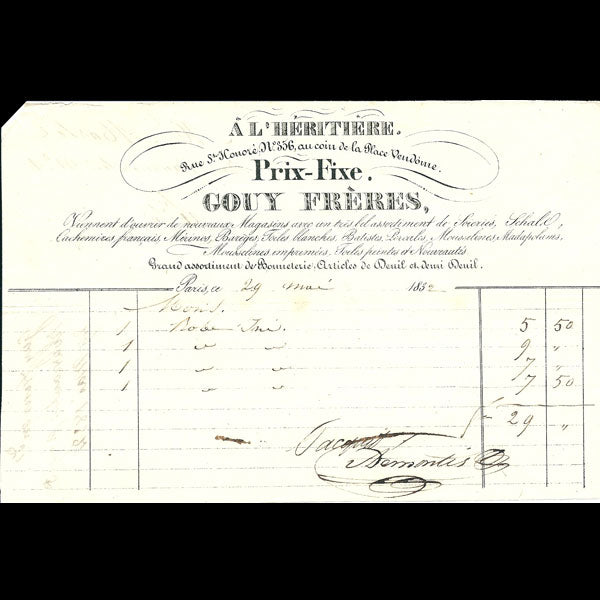 À L'HÉRITIÈRE.
Rue St. Honoré, No. 356, au coin de la Place Vendôme.
Prix-Fixe.
GOUY FRÈRES,
Viennent d'ouvrir de nouveaux Magasins avec un très bel assortiment de Soieries, Schals,
Cachemires français, Mérinos, Barèges, Toiles blanches, Batistes, Percales, Mousselines, Madapolams,
Mousselines imprimées, Toiles peintes et Nouveautés
Grand assortiment de Bonneterie, Articles de Deuil et demi Deuil.
Paris, ce 29 mai 183
Mons.
1 Robe 5 50
1 " " 9 "
1 " " 7 "
1 " " 7 50
29 "